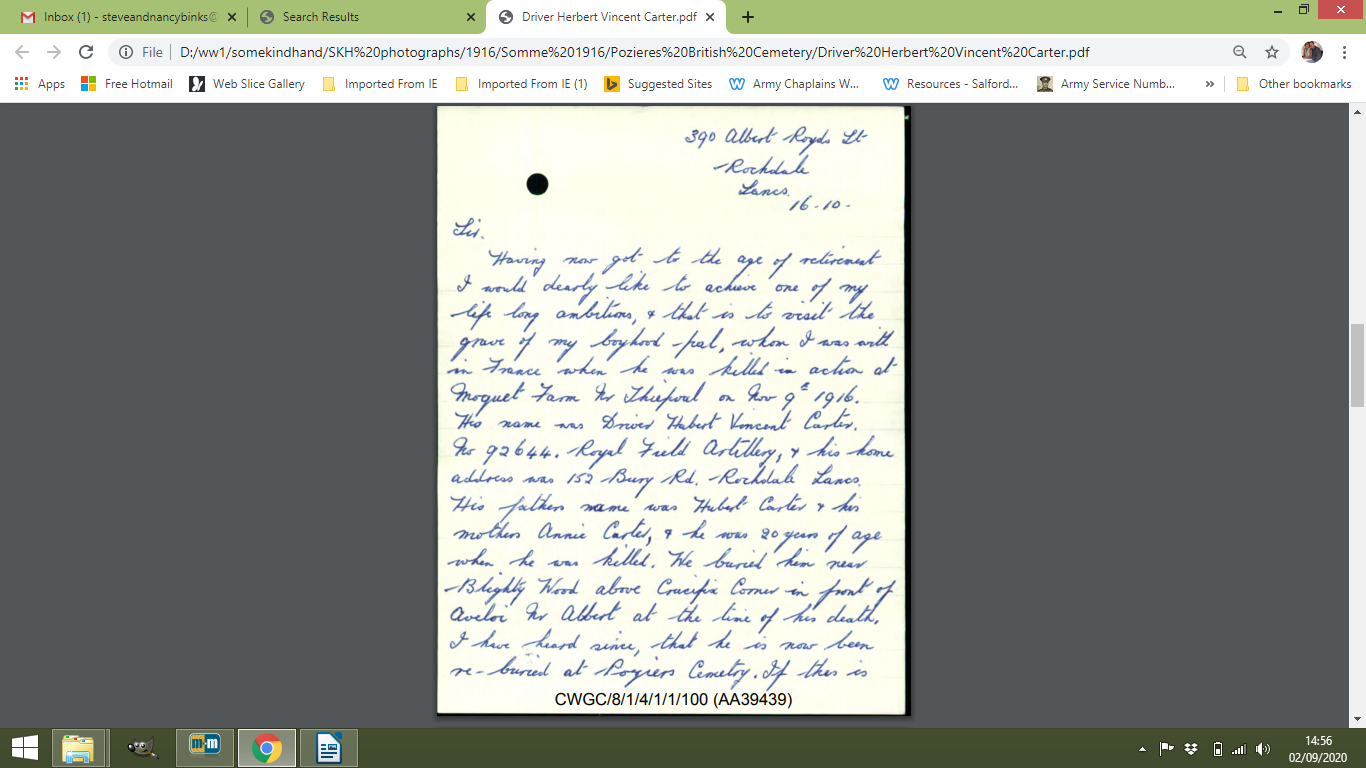 Inbox (1) - steveandnancybinks@
Search Results
Driver Herbert Vincent Carter.pdf
File
D:/ww1/somekindhand/SKH%20photographs/1916/Somme%201916/Pozieres%20British%20Cemetery/Driver%20Herbert%20Vincent%20Carter.pdf
Apps
Free Hotmail
Web Slice Gallery
Imported From IE
Imported From IE (1)
Suggested Sites
Army Chaplains W...
Resources - Salford...
Army Service Numb...
»
Other bookmarks
390 Albert Royds St
Rochdale
Lancs.
16-10-
Sir.
Having now got to the age of retirement
I would dearly like to achieve one of my
life long ambitions, & that is to visit the
grave of my boyhood pal, whom I was with
in France when he was killed in action at
Moquet Farm Nr Thiepval on Nov 9th 1916.
His name was Driver Hubert Vincent Carter.
No 92644. Royal Field Artillery, & his home
address was 152 Bury Rd. Rochdale Lancs.
His fathers name was Hubert Carter & his
mothers Annie Carter, & he was 20 years of age
when he was killed. We buried him near
Blighty Wood above Crucifix Corner in front of
Aveloi Nr Albert at the time of his death.
I have heard since, that he is now been
re-buried at Poziers Cemetry. If this is
CWGC/8/1/4/1/1/100 (AA39439)
14:56
02/09/2020